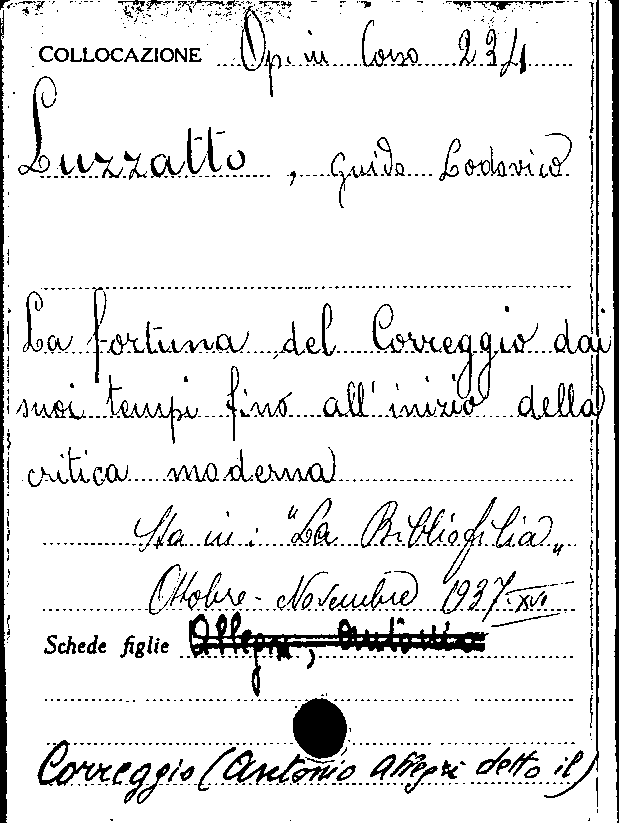 COLLOCAZIONE Op. in Corso 234
Luzzatto, Guido Lodovico
La fortuna del Correggio dai
suoi tempi fino all'inizio della
critica moderna
Sta in: "La Bibliofilia"
Ottobre-Novembre 1937-XVI
Schede figlie Allegri, Antonio
Correggio (Antonio Allegri detto il)